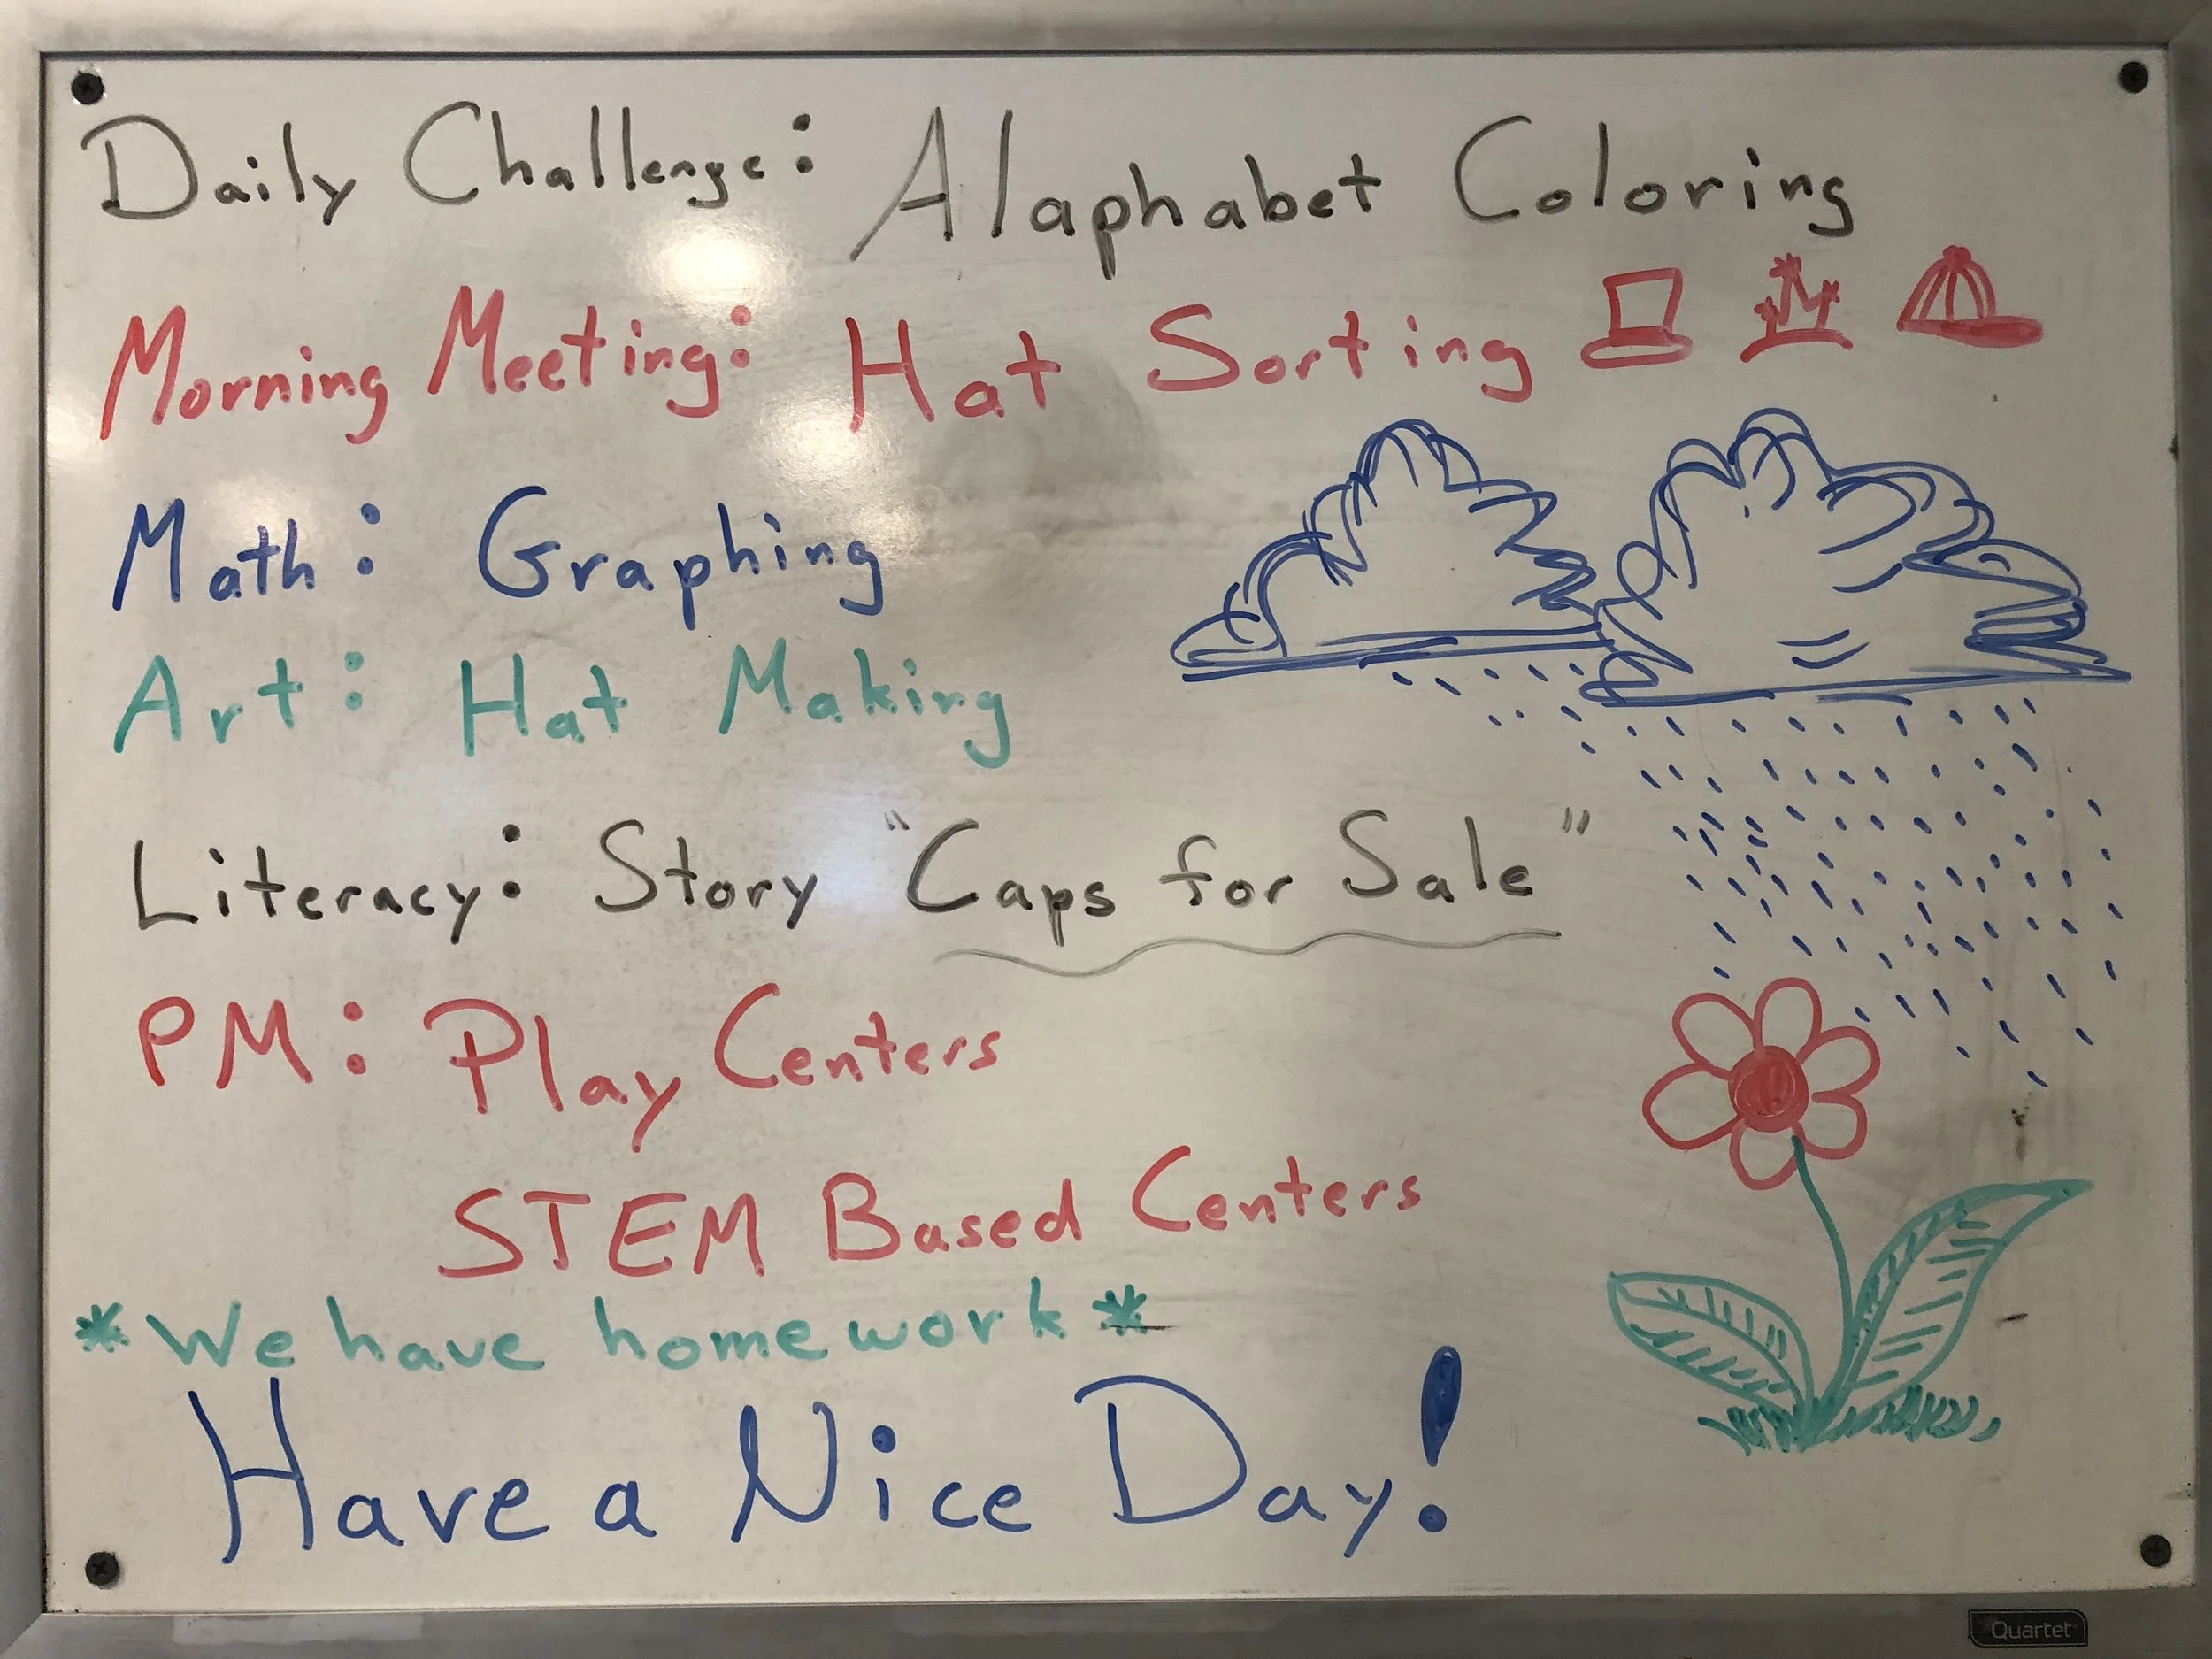 Daily Challenge: Alaphabet Coloring
Morning Meeting: Hat Sorting
Math: Graphing
Art: Hat Making
Literacy: Story "Caps for Sale"
PM: Play Centers
STEM Based Centers
*We have homework*
Have a Nice Day!
Quartet